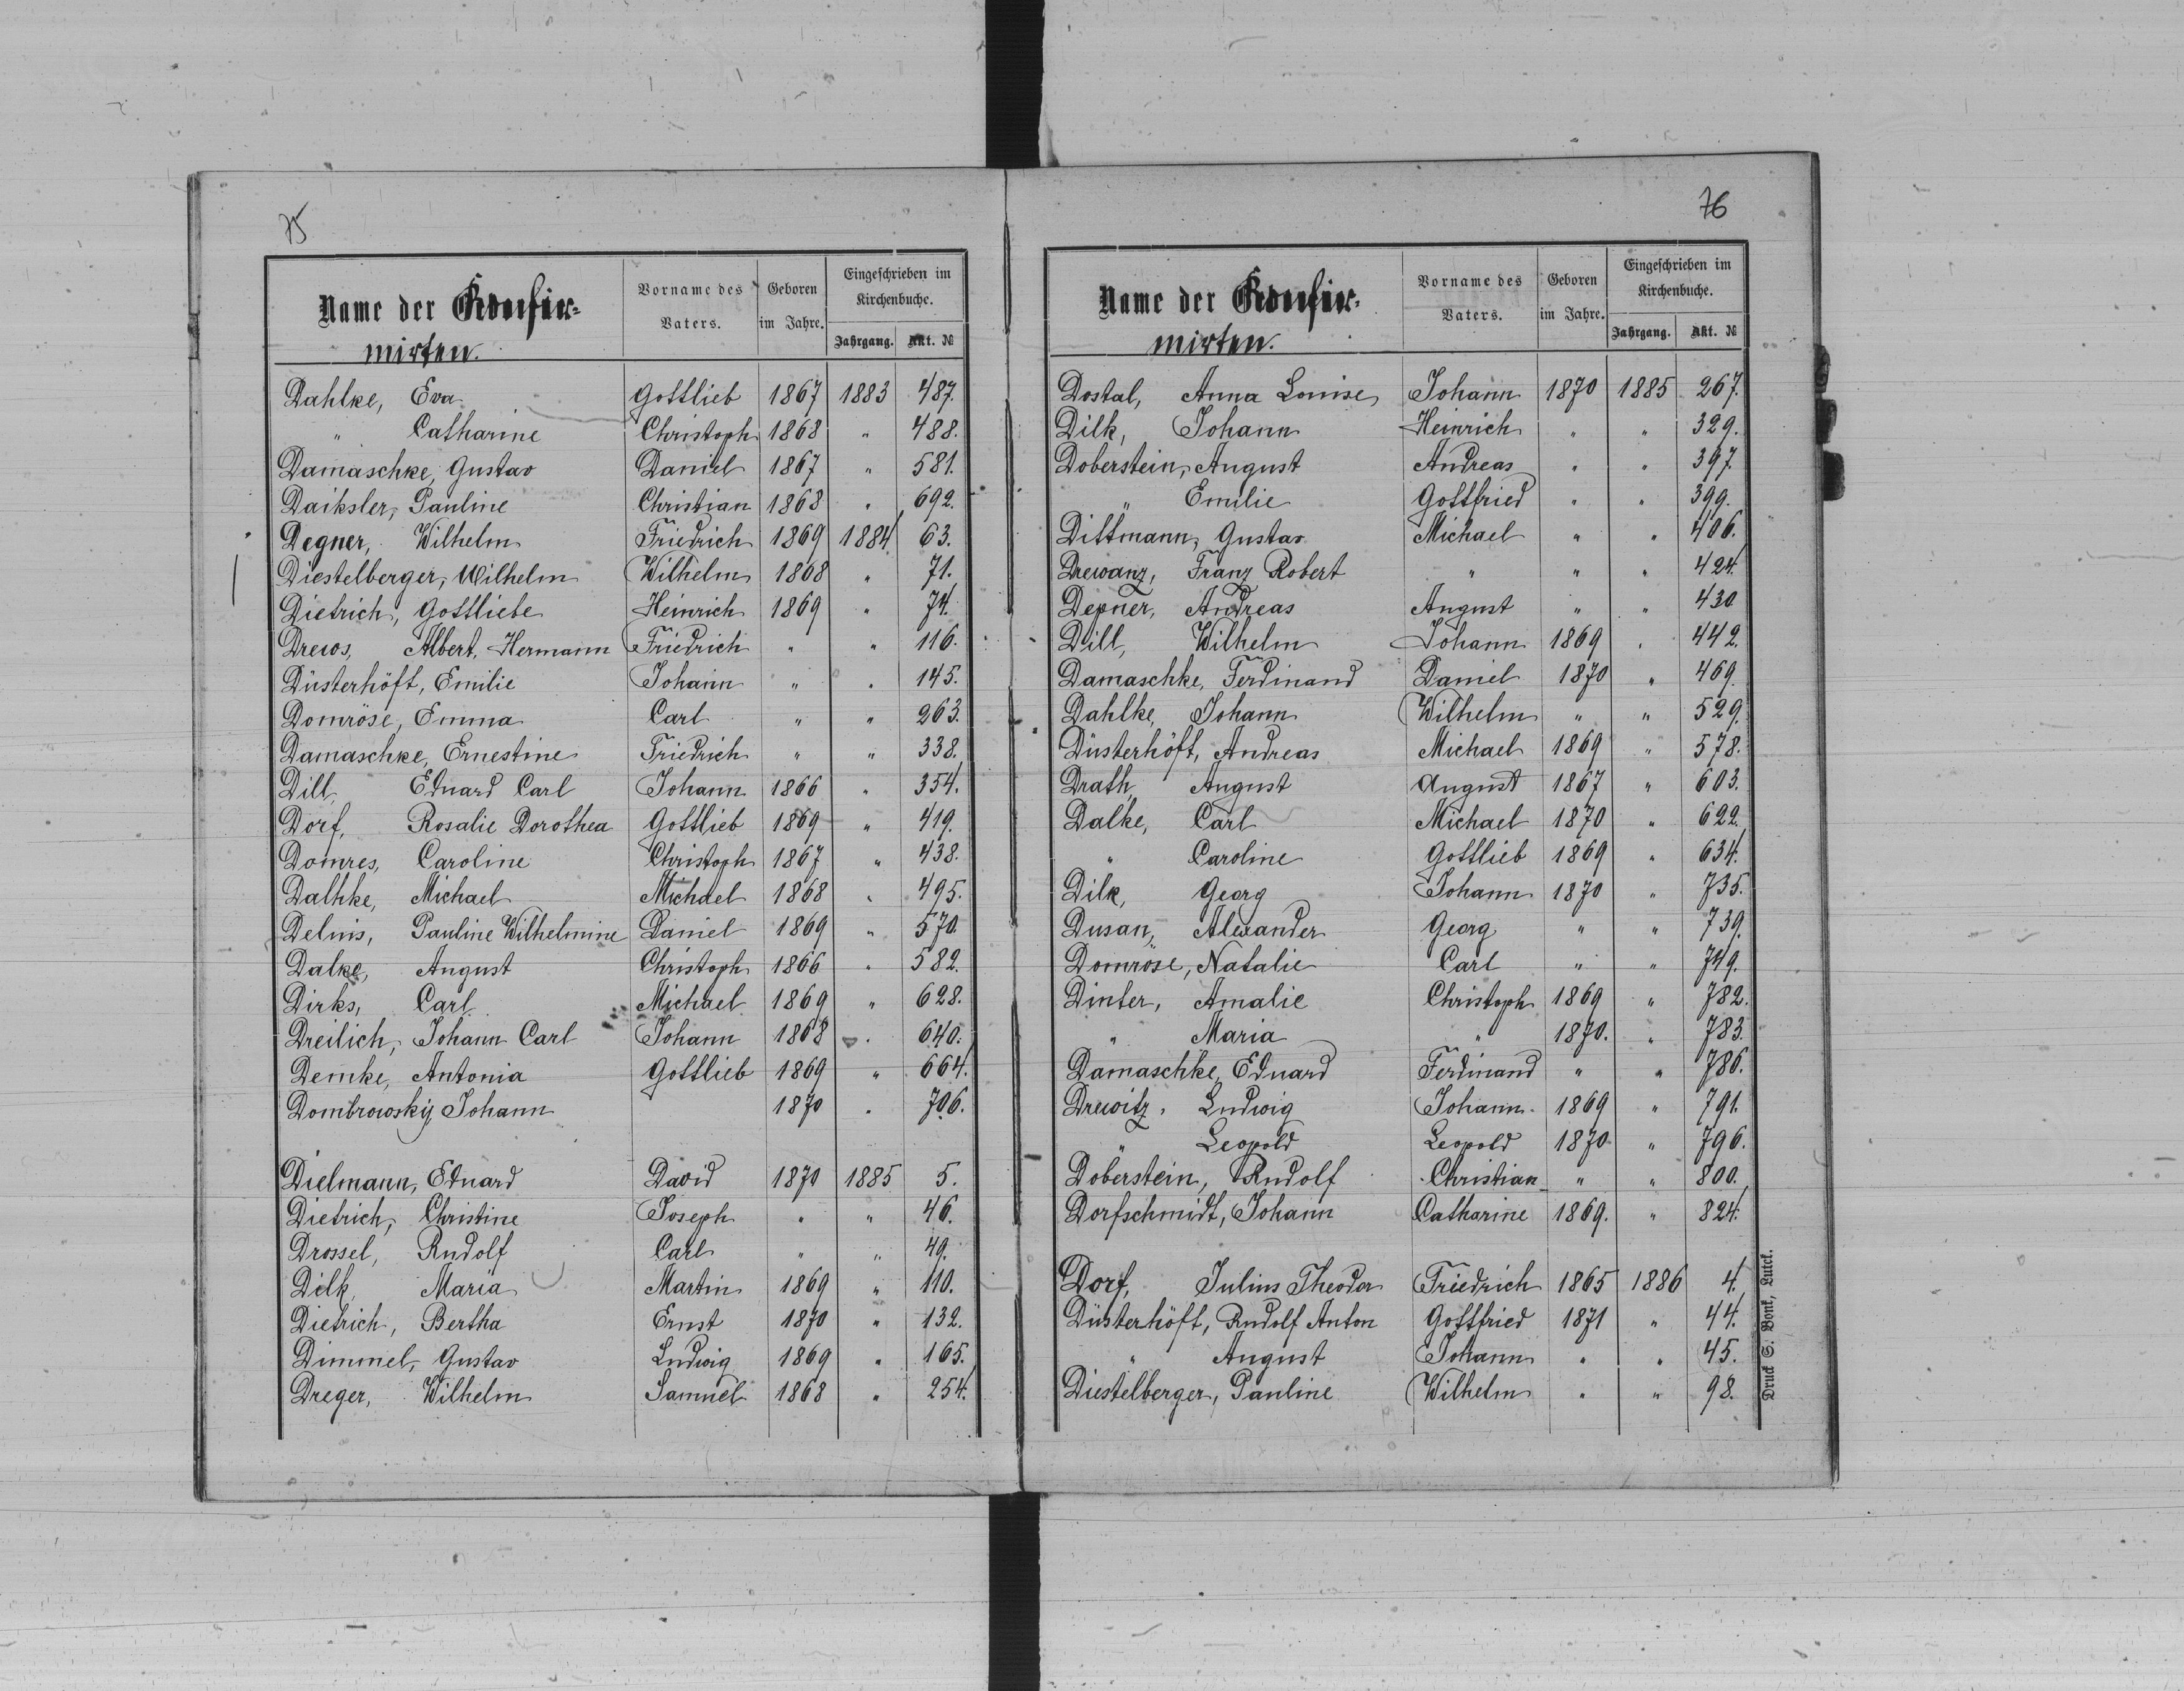 75
Name der Konfir-
mirten.
Vorname des Vaters.
Geboren im Jahre.
Eingeschrieben im Kirchenbuche.
Jahrgang. Akt. №
Dahlke, Eva Gottlieb 1867 1883 487.
" Catharine Christoph 1868 " 488.
Damaschke, Gustav Daniel 1867 " 581.
Daiksler, Pauline Christian 1868 " 692.
Degner, Wilhelm Friedrich 1869 1884 63.
Diestelberger, Wilhelm Wilhelm 1868 " 71.
Dietrich, Gottliebe Heinrich 1869 " 74.
Drews, Albert, Hermann Friedrich " " 116.
Düsterhöft, Emilie Johann " " 145.
Domröse, Emma Carl " " 263.
Damaschke, Ernestine Friedrich " " 338.
Dill, Eduard Carl Johann 1866 " 354.
Dorf, Rosalie Dorothea Gottlieb 1869 " 419.
Domres, Caroline Christoph 1867 " 438.
Dalhke, Michael Michael 1868 " 495.
Delnis, Pauline Wilhelmine Daniel 1869 " 570.
Dalke, August Christoph 1866 " 582.
Dirks, Carl Michael 1869 " 628.
Dreilich, Johann Carl Johann 1868 " 640.
Demke, Antonia Gottlieb 1869 " 664.
Dombrowskij Johann 1870 " 706.
Dielmann, Eduard David 1870 1885 5.
Dietrich, Christine Joseph " " 46.
Drossel, Rudolf Carl " " 49.
Dilk, Maria Martin 1869 " 110.
Dietrich, Bertha Ernst 1870 " 132.
Dimmel, Gustav Ludwig 1869 " 165.
Dreger, Wilhelm Samuel 1868 " 254.
76
Name der Konfir-
mirten.
Vorname des Vaters.
Geboren im Jahre.
Eingeschrieben im Kirchenbuche.
Jahrgang. Akt. №
Dostal, Anna Louise Johann 1870 1885 267.
Dilk, Johann Heinrich " " 329.
Doberstein, August Andreas " " 397.
" Emilie Gottfried " " 399.
Dittmann, Gustav Michael " " 406.
Drewanz, Franz Robert " " " 424.
Depner, Andreas August " " 430
Dill, Wilhelm Johann 1869 " 442.
Damaschke, Ferdinand Daniel 1870 " 469.
Dahlke, Johann Wilhelm " " 529.
Düsterhöft, Andreas Michael 1869 " 578.
Drath, August August 1867 " 603.
Dalke, Carl Michael 1870 " 622.
" Caroline Gottlieb 1869 " 634.
Dilk, Georg Johann 1870 " 735.
Dusan, Alexander Georg " " 739.
Domröse, Natalie Carl " " 749.
Dinter, Amalie Christoph 1869 " 782.
" Maria " 1870. " 783.
Damaschke, Eduard Ferdinand " " 786.
Drewitz, Ludwig Johann 1869 " 791.
" Leopold Leopold 1870 " 796.
Doberstein, Rudolf Christian " " 800.
Dorfschmidt, Johann Catharine 1869. " 824.
Dorf, Julius Theodor Friedrich 1865 1886 4.
Düsterhöft, Rudolf Anton Gottfried 1871 " 44.
" August Johann " " 45.
Diestelberger, Pauline Wilhelm " " 98.
Druck S. Bonk, Lutzk.